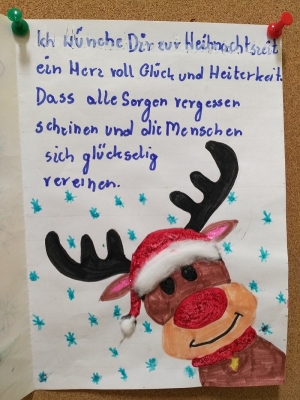 Ich wünche Dir zur Weihnachtszeit
ein Herz voll Glück und Heiterkeit.
Dass alle Sorgen vergessen
scheinen und die Menschen
sich glückselig
vereinen.